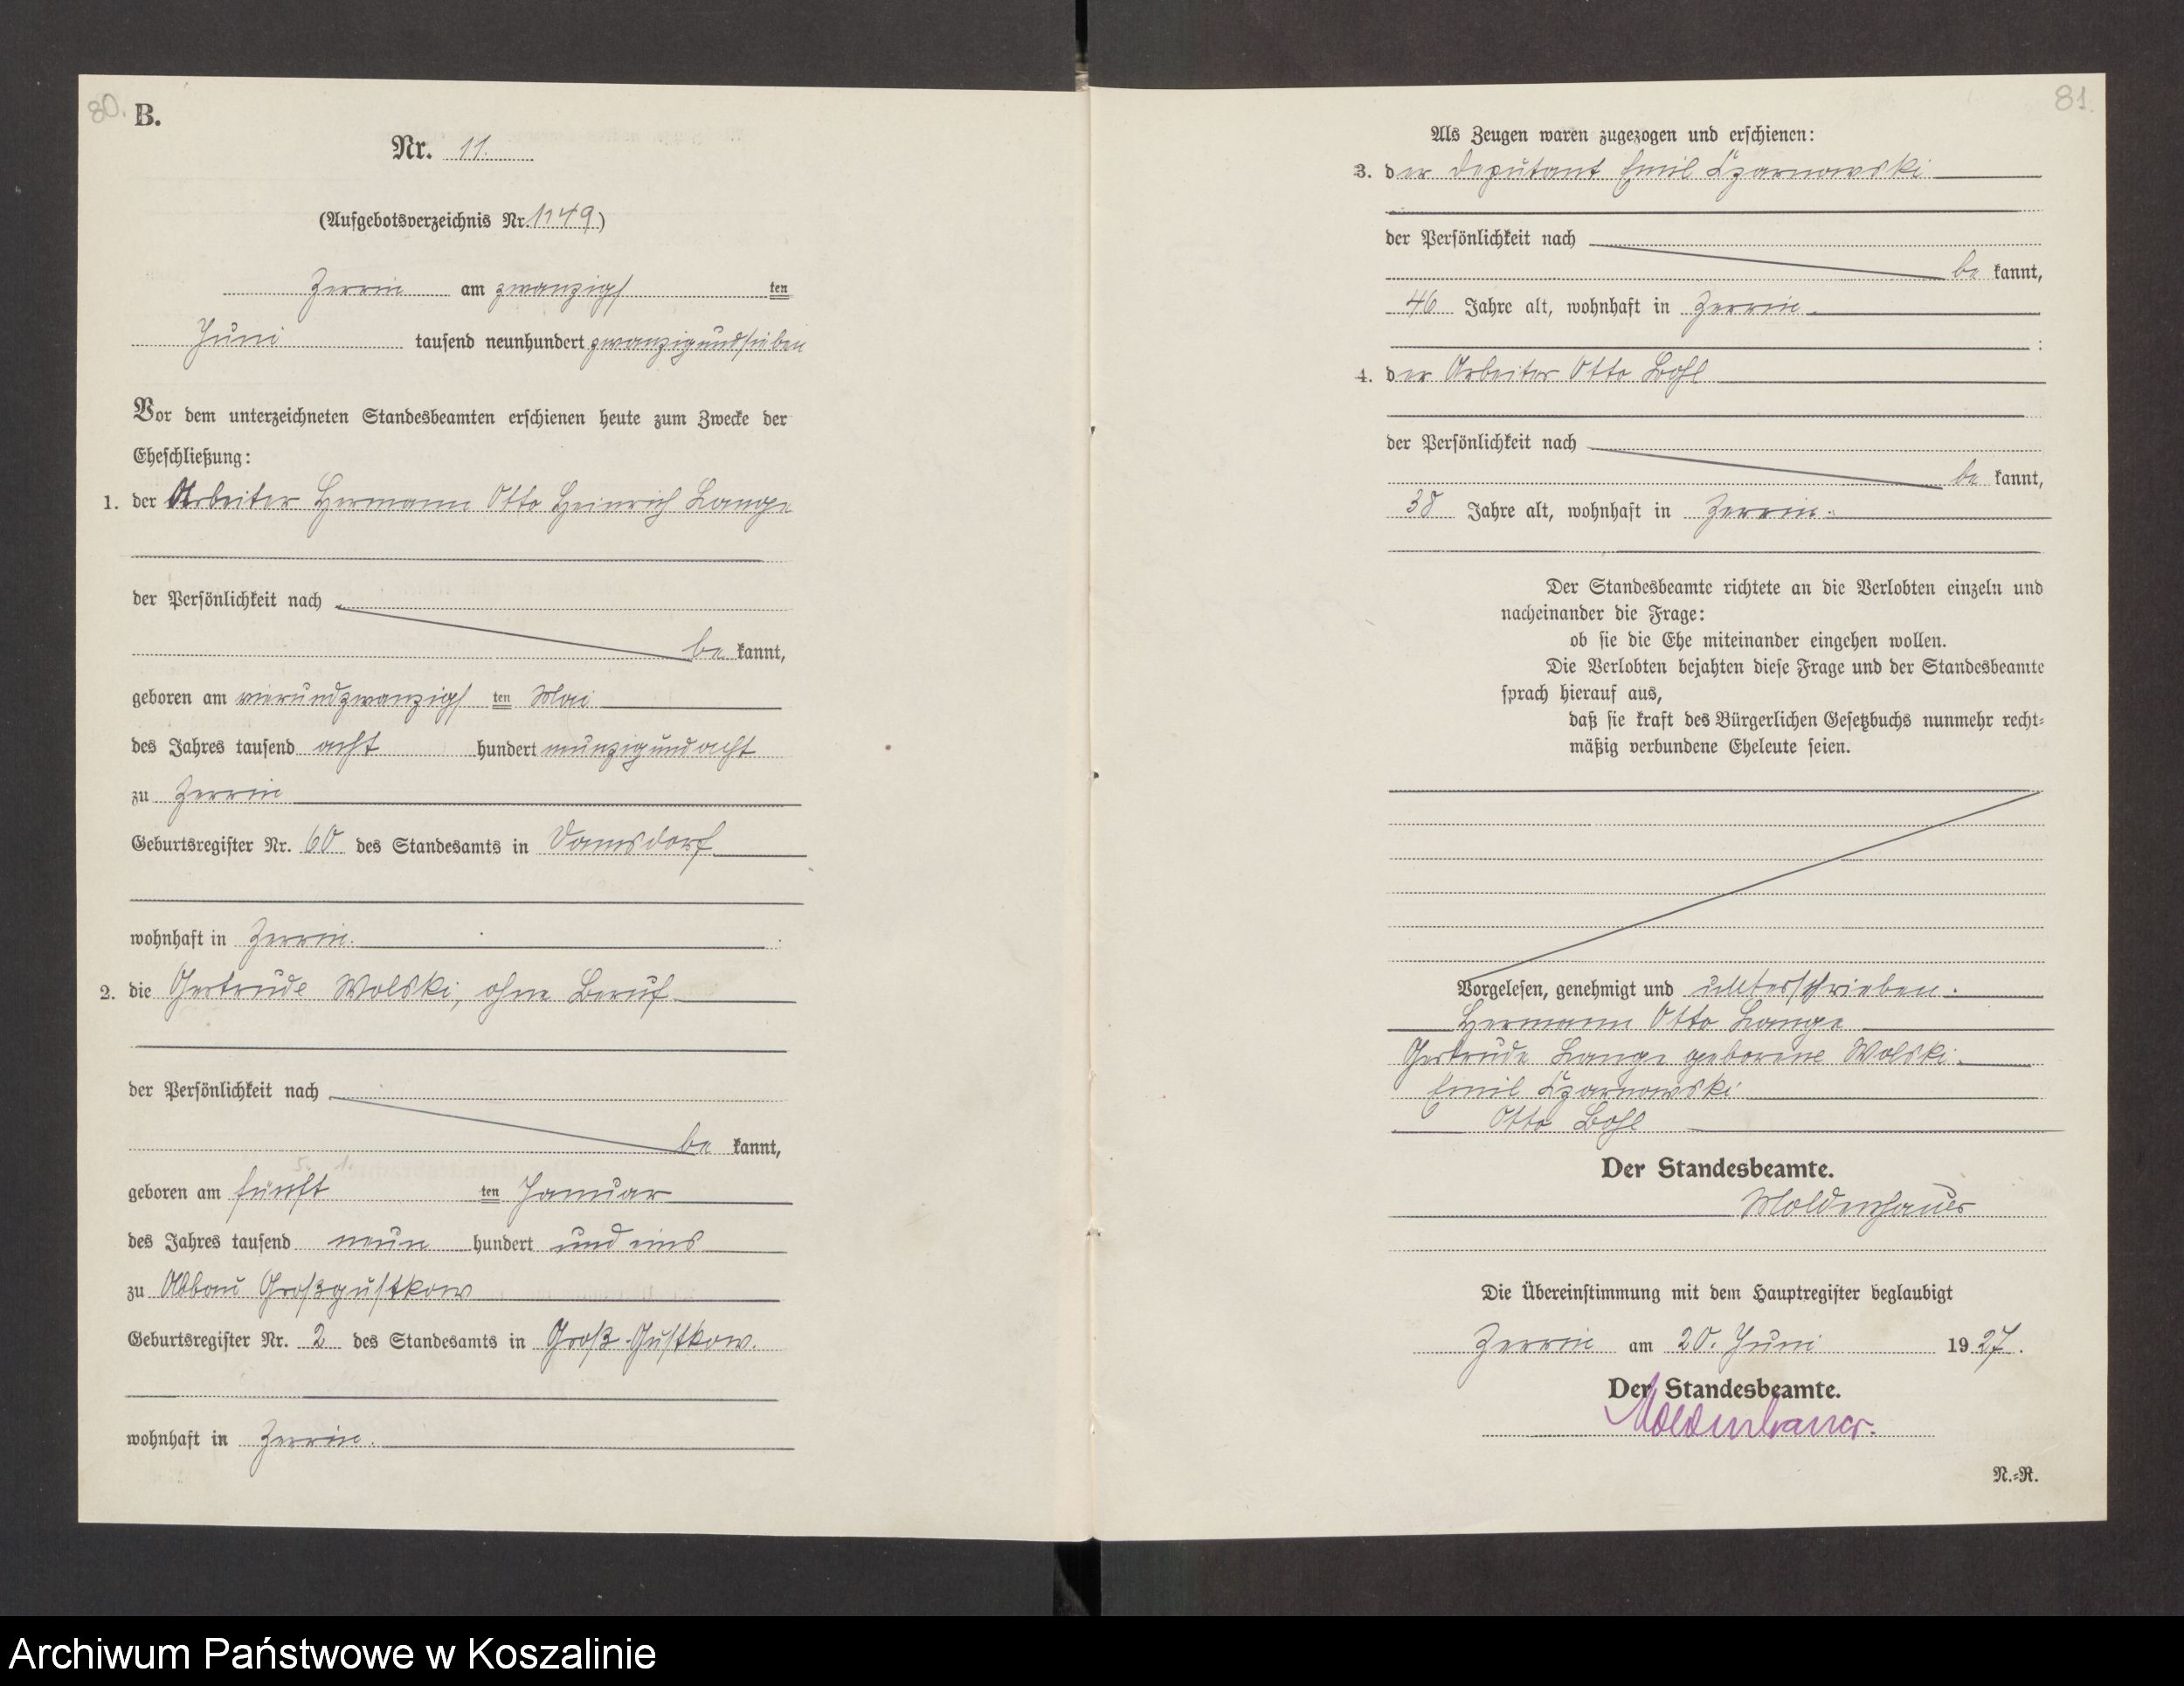 80.
B.
Nr. 11.
(Aufgebotsverzeichnis Nr. 1149)
Zerrin am zwanzigs ten
Juni tausend neunhundert zwanzigundsieben
Vor dem unterzeichneten Standesbeamten erschienen heute zum Zwecke der
Eheschließung:
1. der Arbeiter Hermann Otto Heinrich Lange
der Persönlichkeit nach
be kannt,
geboren am vierundzwanzigs ten Mai
des Jahres tausend acht hundert neunzigundacht
zu Zerrin
Geburtsregister Nr. 60 des Standesamts in Damsdorf
wohnhaft in Zerrin.
2. die Gertrude Wolski, ohne Beruf
der Persönlichkeit nach
be kannt,
5. 1.
geboren am fünft ten Januar
des Jahres tausend neun hundert und eins
zu Abbau Großgustkow
Geburtsregister Nr. 2 des Standesamts in Groß-Gustkow.
wohnhaft in Zerrin.
81.
Als Zeugen waren zugezogen und erschienen:
3. der Deputant Emil Czarnowski
der Persönlichkeit nach
be kannt,
46 Jahre alt, wohnhaft in Zerrin
4. der Arbeiter Otto Bohl
der Persönlichkeit nach
be kannt,
38 Jahre alt, wohnhaft in Zerrin.
Der Standesbeamte richtete an die Verlobten einzeln und
nacheinander die Frage:
ob sie die Ehe miteinander eingehen wollen.
Die Verlobten bejahten diese Frage und der Standesbeamte
sprach hierauf aus,
daß sie kraft des Bürgerlichen Gesetzbuchs nunmehr recht-
mäßig verbundene Eheleute seien.
Vorgelesen, genehmigt und unterschrieben.
Hermann Otto Lange
Gertrude Lange geborene Wolski.
Emil Czarnowski
Otto Bohl
Der Standesbeamte.
Moldenhauer
Die Übereinstimmung mit dem Hauptregister beglaubigt
Zerrin am 20. Juni 1927.
Der Standesbeamte.
Moldenhauer.
N.-R.
Archiwum Państwowe w Koszalinie